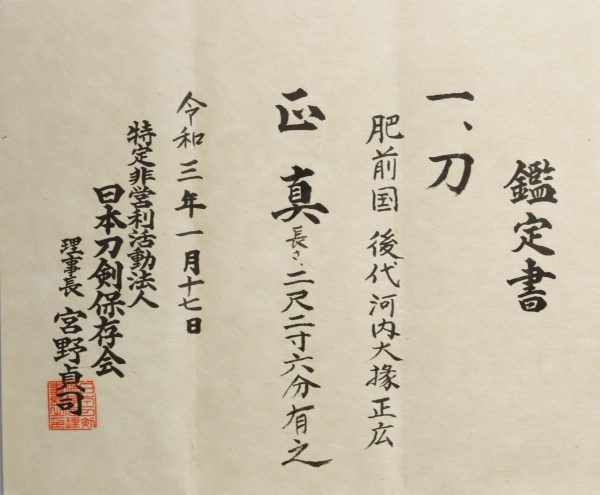 鑑定書
一、刀
肥前国 後代河内大掾正広
正真
長さ、二尺二寸六分有之
令和三年一月十七日
特定非営利活動法人
日本刀剣保存会
理事長 宮野貞司